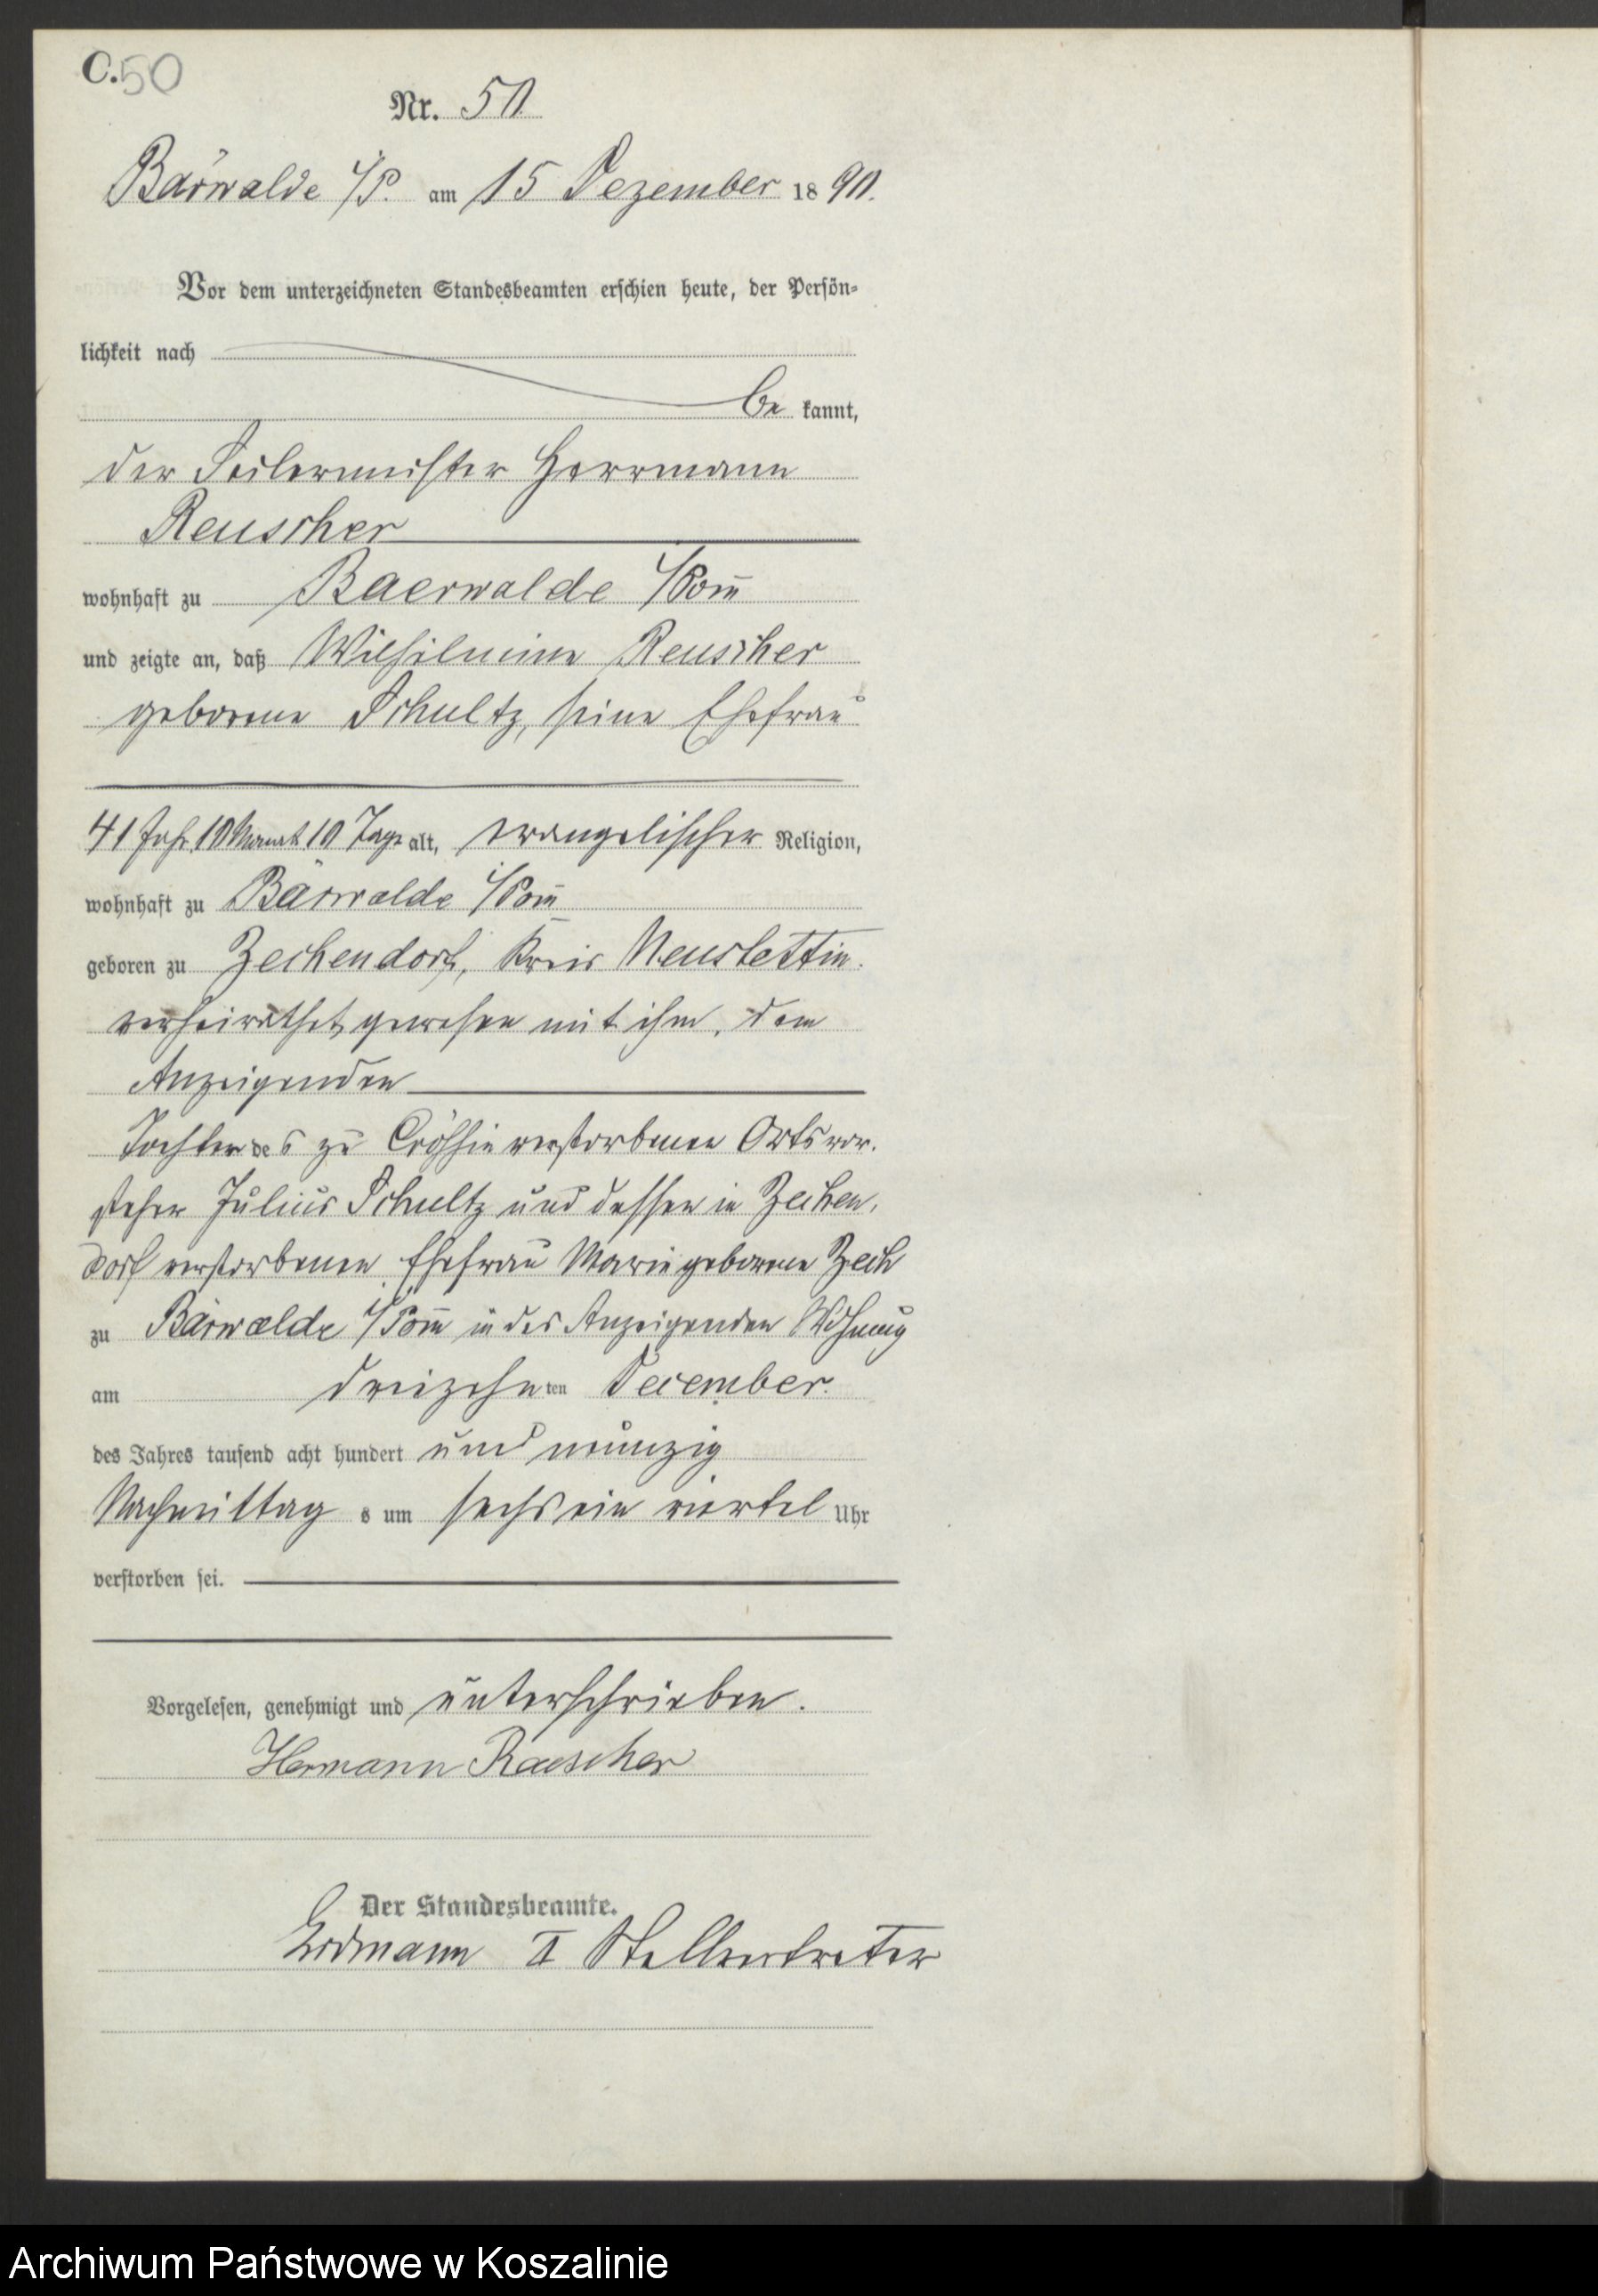 C. 50
Nr. 50
Bärwalde i/P. am 15 Dezember 1890.
Vor dem unterzeichneten Standesbeamten erschien heute, der Persön-
lichkeit nach
be kannt,
der Seilermeister Herrmann
Reuscher
wohnhaft zu Baerwalde i/Pom̄
und zeigte an, daß Wilhelmine Reuscher
geborene Schultz, seine Ehefrau
41 Jahr 10 Monat 10 Tage alt, evangelischer Religion,
wohnhaft zu Bärwalde i/Pom̄
geboren zu Zechendorf, Kreis Neustettin.
verheirathet gewesen mit ihm, dem
Anzeigenden
Tochter des zu verstorbenen Ortsvor-
steher Julius Schultz und dessen in Zechen-
dorf verstorbenen Ehefrau Marie geborene Zech
zu Bärwalde i/Pom̄ in des Anzeigenden Wohnung
am dreizehnten December.
des Jahres tausend acht hundert und neunzig
Nachmittags um sechs ein viertel Uhr
verstorben sei.
Vorgelesen, genehmigt und unterschrieben.
Hermann Raescher
Der Standesbeamte.
Erdmann II Stellvertreter
Archiwum Państwowe w Koszalinie